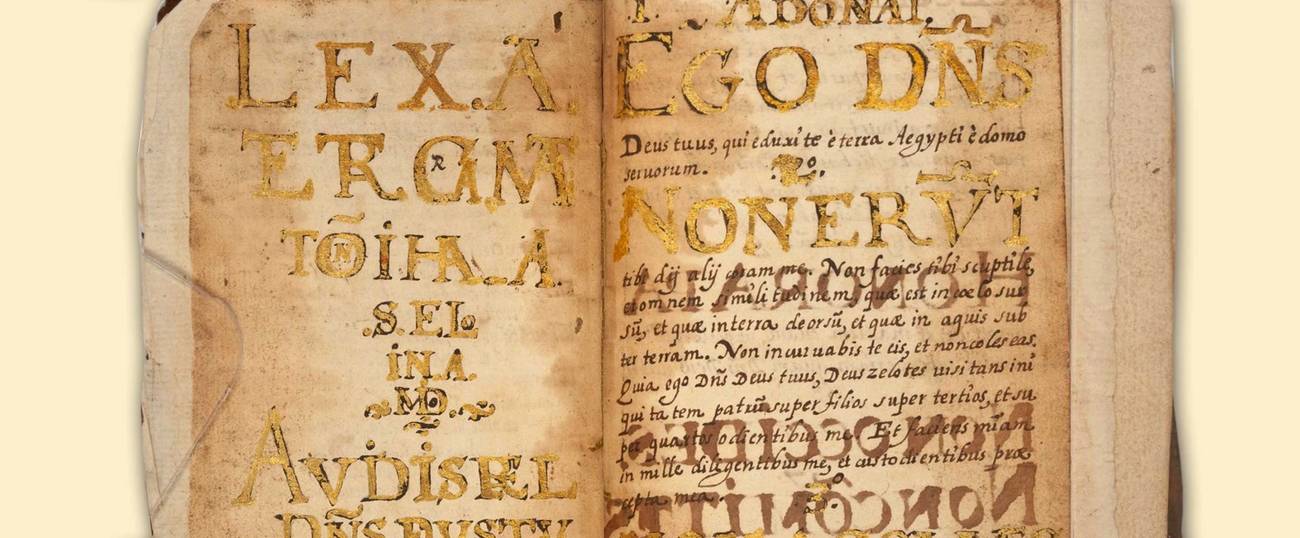 LEXA
ERGM
TÕIHA
S.EL
IN.A.
MD
AVDISREL
DÑS
ADONAI
EGO DÑS
Deus tuus, qui eduxi te è terra Aegypti è domo
seruorum.
2º
NONERV̄T
tibi dij alij coram me. Non facies tibi sculptile,
et omnem similitudinem, quæ est in cœlo sur
sũ, et quæ in terra deorsũ, et quæ in aquis sub
ter terram. Non incuruabis te eis, et non coles eas.
Quia ego Dñs Deus tuus, Deus zelotes visitans ini
quitatem patrũ super filios super tertios, et su
per quartos odientibus me. Et faciens mĩam
in mille diligentibus me, et custodientibus præ
cepta mea.
3º